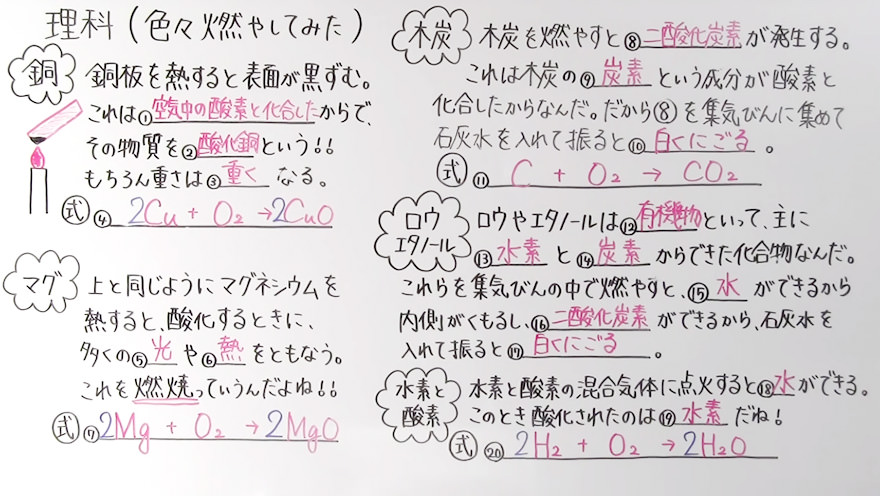 理科(色々燃やしてみた)
銅
銅板を熱すると表面が黒ずむ。
これは①空気中の酸素と化合したからで、
その物質を②酸化銅という!!
もちろん重さは③重くなる。
式④ 2Cu + O₂ → 2CuO
マグ
上と同じようにマグネシウムを
熱すると、酸化するときに、
多くの⑤光や⑥熱をともなう。
これを燃焼っていうんだよね!!
式⑦ 2Mg + O₂ → 2MgO
木炭
木炭を燃やすと⑧二酸化炭素が発生する。
これは木炭の⑨炭素という成分が酸素と
化合したからなんだ。だから⑧を集気びんに集めて
石灰水を入れて振ると⑩白くにごる。
式⑪ C + O₂ → CO₂
ロウ
エタノール
ロウやエタノールは⑫有機物といって、主に
⑬水素と⑭炭素からできた化合物なんだ。
これらを集気びんの中で燃やすと、⑮水ができるから
内側がくもるし、⑯二酸化炭素ができるから、石灰水を
入れて振ると⑰白くにごる。
水素と
酸素
水素と酸素の混合気体に点火すると⑱水ができる。
このとき酸化されたのは⑲水素だね!
式⑳ 2H₂ + O₂ → 2H₂O